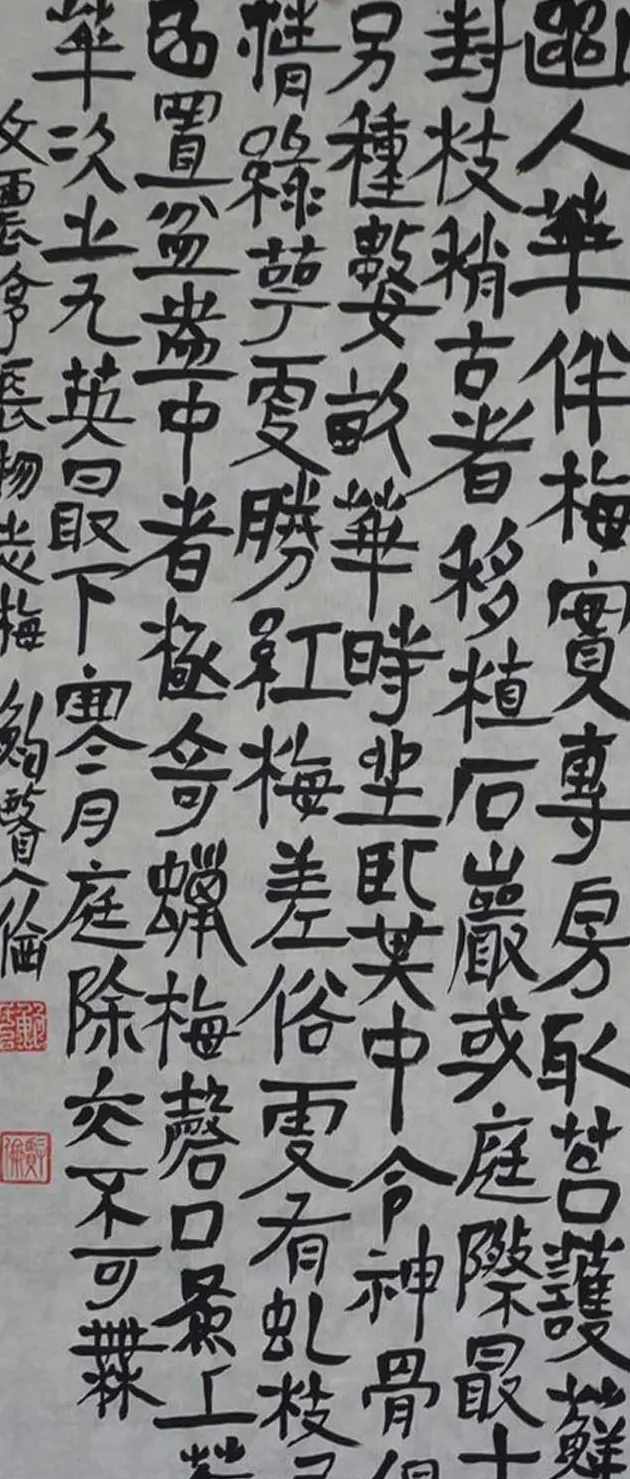 幽人華伴梅實專房取苔護蘚
封枝稍古者移植石巖或庭際最
另種數畝華時坐臥其中令神骨俱
清綠萼更勝紅梅差俗更有虬枝
曲置盆盎中者極奇蠟梅磬口為上
華次之九英最下寒月庭除亦不可無
文震亨長物志梅